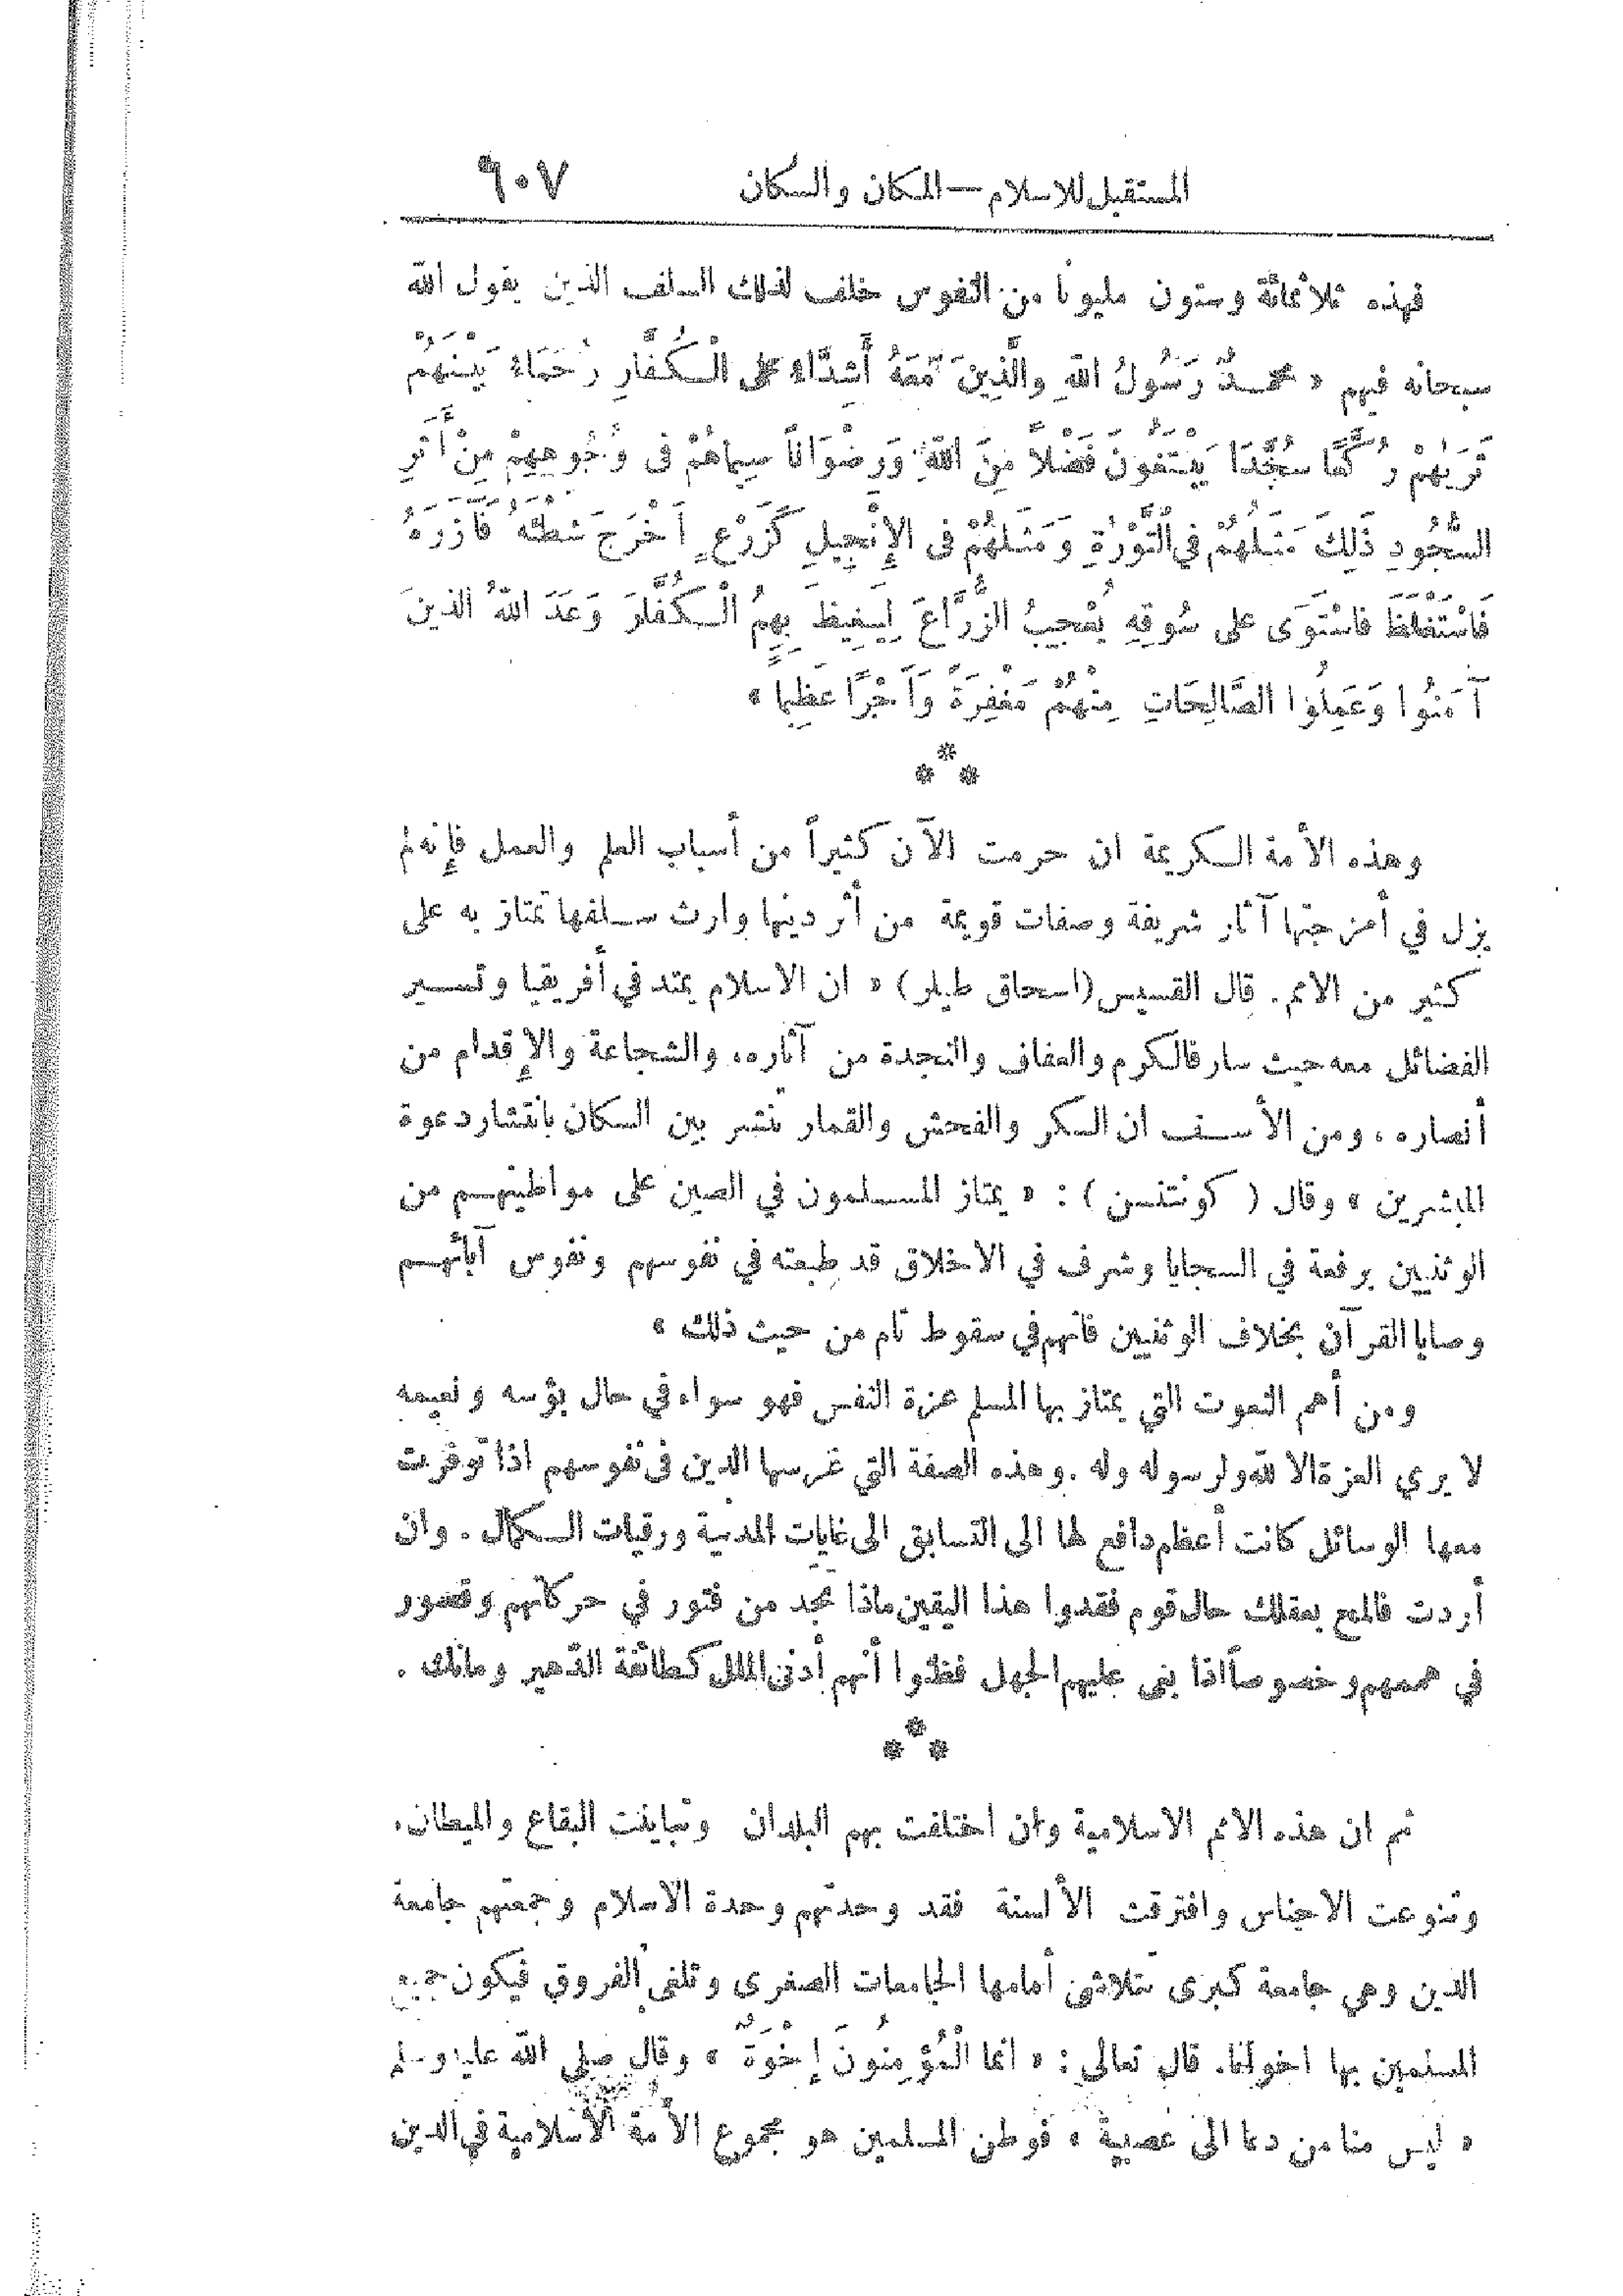 المستقبل للاسلام — المكان والسكان ٩٠٧
فهذه ثلاثمائة وستون مليونا من النفوس خلف لذلك السلف الذين يقول الله
سبحانه فيهم « محمدٌ رَسُولُ اللهِ والَّذِينَ مَعَهُ أَشِدَّاءُ على الْكُفَّارِ رُحَمَاءُ بَيْنَهُمْ
تَرَيٰهُمْ رُكَّعًا سُجَّدًا يَبْتَغُونَ فَضْلاً مِنَ اللهِ وَرِضْوَانًا سِيماهُمْ فى وُجُوهِهِمْ مِنْ أَثَرِ
السُّجُودِ ذَلِكَ مَثَلُهُمْ فِي التَّوْرٰةِ وَمَثَلُهُمْ فى الإِنْجِيلِ كَزَرْعٍ أَخْرَجَ شَطْئَهُ فَآزَرَهُ
فَاسْتَغْلَظَ فاسْتَوَى على سُوقِهِ يُعْجِبُ الزُّرَّاعَ لِيَغِيظَ بِهِمُ الْكُفَّارَ وَعَدَ اللهُ الذينَ
آمَنُوا وَعَمِلُوا الصَّالِحَاتِ مِنْهُمْ مَغْفِرَةً وَأَجْرًا عَظِيما »
***
وهذه الأمة الكريمة ان حرمت الآن كثيراً من أسباب العلم والعمل فإنه لم
يزل في أمزجتها آثار شريفة وصفات قويمة من أثر دينها وارث سلفها تمتاز به على
كثير من الامم. قال القسيس (اسحاق طيلر) « ان الاسلام يمتد في أفريقيا وتسير
الفضائل معه حيث سار فالكرم والعفاف والنجدة من آثاره، والشجاعة والإقدام من
أنصاره، ومن الأسف ان السكر والفحش والقمار تنتشر بين السكان بانتشار دعوة
المبشرين » وقال ( كونتنسن ) : « يمتاز المسلمون في الصين على مواطنيهم من
الوثنيين برفعة في السجايا وشرف في الاخلاق قد طبعته في نفوسهم ونفوس آبائهم
وصايا القرآن بخلاف الوثنيين فانهم في سقوط تام من حيث ذلك »
ومن أهم النعوت التي يمتاز بها المسلم عزة النفس فهو سواء في حال بؤسه ونعيمه
لا يري العزة الا لله ولرسوله وله . وهذه الصفة التي غرسها الدين فى نفوسهم اذا توفرت
معها الوسائل كانت أعظم دافع لها الى التسابق الى غايات المدنية ورقيات الكمال . وان
أردت فالمع بعقلك حال قوم فقدوا هذا اليقين ماذا تجد من فتور في حركاتهم وقصور
في هممهم وخصوصاً اذا بنى عليهم الجهل فظنوا أنهم أدنى الملل كطائفة الدهير ومانك .
***
ثم ان هذه الامم الاسلامية وان اختلفت بهم البلدان وتباينت البقاع والميطان،
وتنوعت الاجناس وافترقت الألسنة فقد وحدتهم وحدة الاسلام وجمعتهم جامعة
الدين وهي جامعة كبرى تتلاشى أمامها الجامعات الصغرى وتلغى الفروق فيكون جميع
المسلمين بها اخوانا. قال تعالى : « انما الْمُؤمِنُونَ إِخْوَةٌ » وقال صلى الله عليه وسلم
« ليس منا من دعا الى عصبية » فوطن المسلمين هو مجموع الأمة الاسلامية في الدين